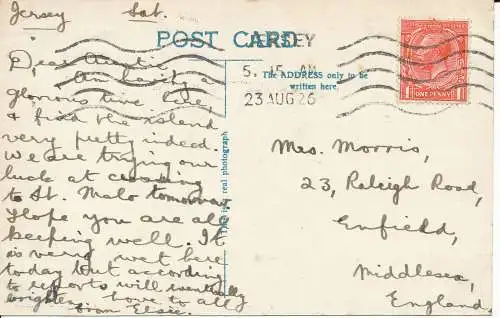 Jersey Sat.
POST CARD
JERSEY
5. 15 AM
23 AUG 26
The ADDRESS only to be
written here.
ONE PENNY
Dear Auntie
Am having a
glorious time here,
& find the island
very pretty indeed.
We are trying our
luck at crossing
to St. Malo tomorrow
Hope you are all
keeping well. It
is very wet here
today but according
to reports will eventually
brighter. Love to all
from Elsie.
This is a real photograph
Mrs. Morris,
23, Raleigh Road,
Enfield,
Middlesex,
England.